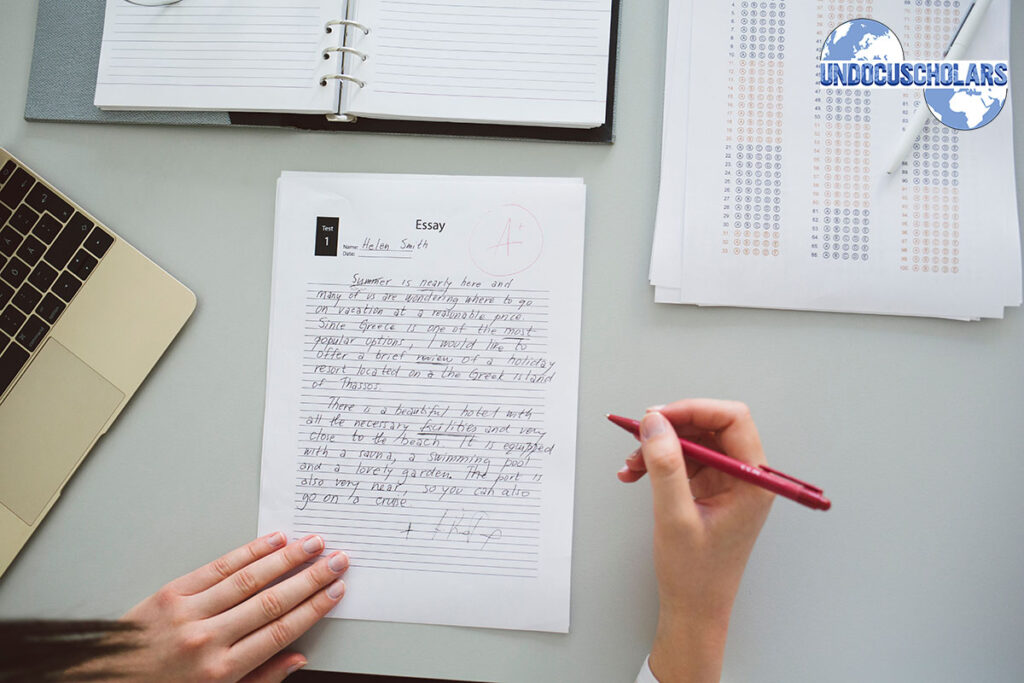 UNDOCUSCHOLARS
Essay
A+
Test
1
Name: Helen Smith
Date:
Summer is nearly here and
many of us are wondering where to go
on vacation at a reasonable price.
Since Greece is one of the most
popular options, I would like to
offer a brief review of a holiday
resort located on a the Greek island
of Thassos.
There is a beautiful hotel with
all the necessary facilities and very
close to the beach. It is equipped
with a sauna, a swimming pool
and a lovely garden. The port is
also very near, so you can also
go on a cruise.